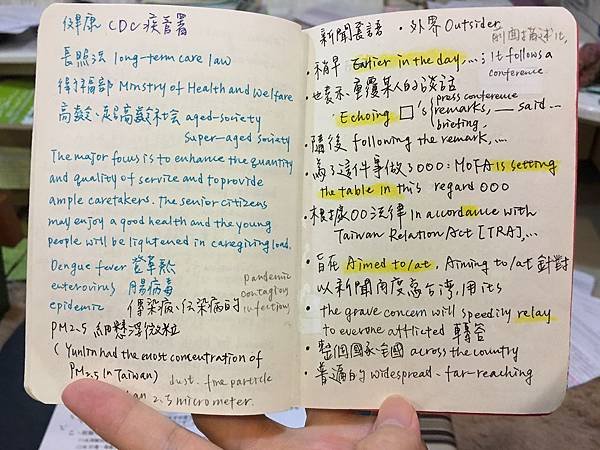 健康 CDC 疾管署
長照法 long-term care law
衛福部 Ministry of Health and Welfare
高齡、超高齡社會 aged-society
super-aged society
The major focus is to enhance the quantity
and quality of service and to provide
ample caretakers. The senior citizens
may enjoy a good health and the young
people will be lightened in caregiving load.
Dengue fever 登革熱
enterovirus 腸病毒
epidemic 傳染病、傳染病的
pandemic
contagion
infectious
PM2.5 細懸浮微粒
(Yunlin had the most concentration of
PM2.5 in Taiwan)
dust. fine particle
an 2.5 micrometer.
新聞長語 ・外界 Outsider
前面描述it,
・稍早 Earlier in the day...; it follows a
conference.
・也表示、重覆某人的談話
Echoing □'s { press conference
remarks, __ said...
briefing,
・隨後 following the remark,...
・為了這件事做了OOO: MOFA is setting
the table in this regard OOO
・根據OO法律 In accordance with
Taiwan Relation Act [TRA]...
・旨在 Aimed to/at, Aiming to/at 針對
以新聞角度為台灣,用 its
・the grave concern will speedily relay
to everone afflicted 轉答
・整個國家、全國 across the country
・普遍的 widespread、far-reaching